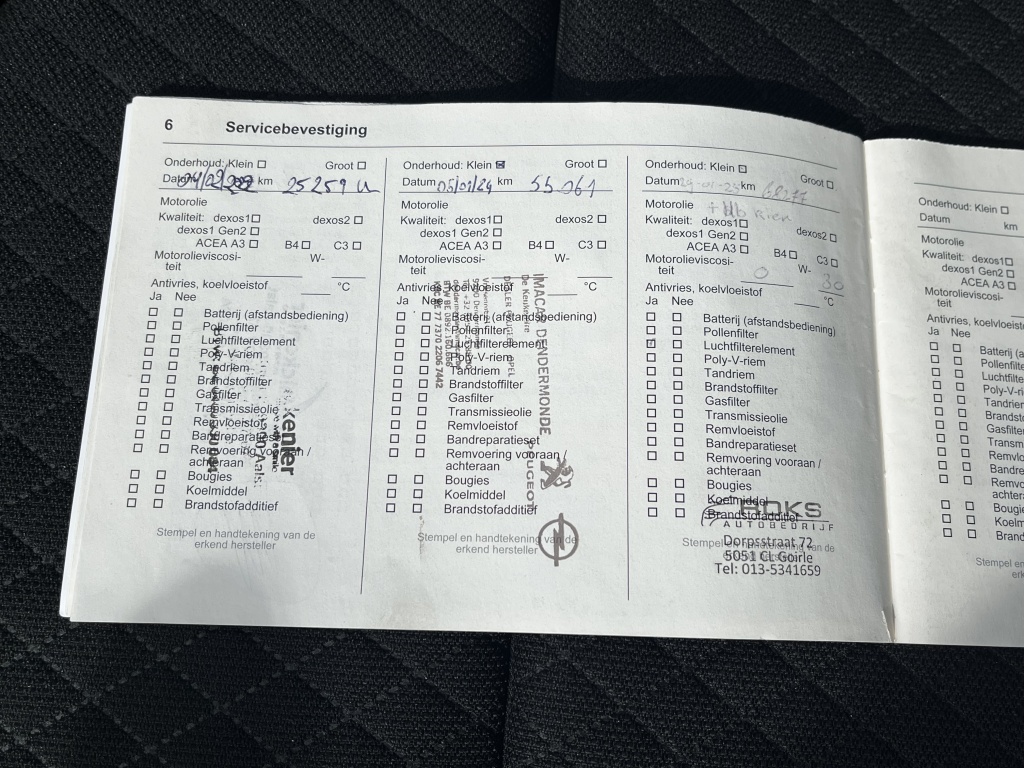 6 Servicebevestiging
Onderhoud: Klein Groot
Datum km 25259
Motorolie
Kwaliteit: dexos1 dexos2
dexos1 Gen2
ACEA A3 B4 C3
Motorolieviscosi- W-
teit
Antivries, koelvloeistof °C
Ja Nee
Batterij (afstandsbediening)
Pollenfilter
Luchtfilterelement
Poly-V-riem
Tandriem
Brandstoffilter
Gasfilter
Transmissieolie
Remvloeistof
Bandreparatieset
Remvoering vooraan /
achteraan
Bougies
Koelmiddel
Brandstofadditief
Stempel en handtekening van de
erkend hersteller
Onderhoud: Klein Groot
Datum 05/01/24 km 55061
Motorolie
Kwaliteit: dexos1 dexos2
dexos1 Gen2
ACEA A3 B4 C3
Motorolieviscosi- W-
teit
Antivries, koelvloeistof °C
Ja Nee
Batterij (afstandsbediening)
Pollenfilter
Luchtfilterelement
Poly-V-riem
Tandriem
Brandstoffilter
Gasfilter
Transmissieolie
Remvloeistof
Bandreparatieset
Remvoering vooraan /
achteraan
Bougies
Koelmiddel
Brandstofadditief
Stempel en handtekening van de
erkend hersteller
IMACAR DENDERMONDE
De Keukeleire
PEUGEOT
Onderhoud: Klein Groot
Datum km
Motorolie
Kwaliteit: dexos1 dexos2
dexos1 Gen2
ACEA A3 B4 C3
Motorolieviscosi- 0 W- 30
teit
Antivries, koelvloeistof °C
Ja Nee
Batterij (afstandsbediening)
Pollenfilter
Luchtfilterelement
Poly-V-riem
Tandriem
Brandstoffilter
Gasfilter
Transmissieolie
Remvloeistof
Bandreparatieset
Remvoering vooraan /
achteraan
Bougies
Koelmiddel
Brandstofadditief
Stempel en handtekening van de
erkend hersteller
ROKS
AUTOBEDRIJF
Dorpsstraat 72
5051 CL Goirle
Tel: 013-5341659
Onderhoud: Klein
Datum km
Motorolie
Kwaliteit: dexos1
dexos1 Gen2
ACEA A3
Motorolieviscosi-
teit
Antivries, koelvloeisto
Ja Nee
Batterij (a
Pollenfilte
Luchtfilte
Poly-V-ri
Tandrier
Brandst
Gasfilte
Transm
Remvlo
Bandre
Remvo
achter
Bougi
Koelm
Brand
Stempel en
erk